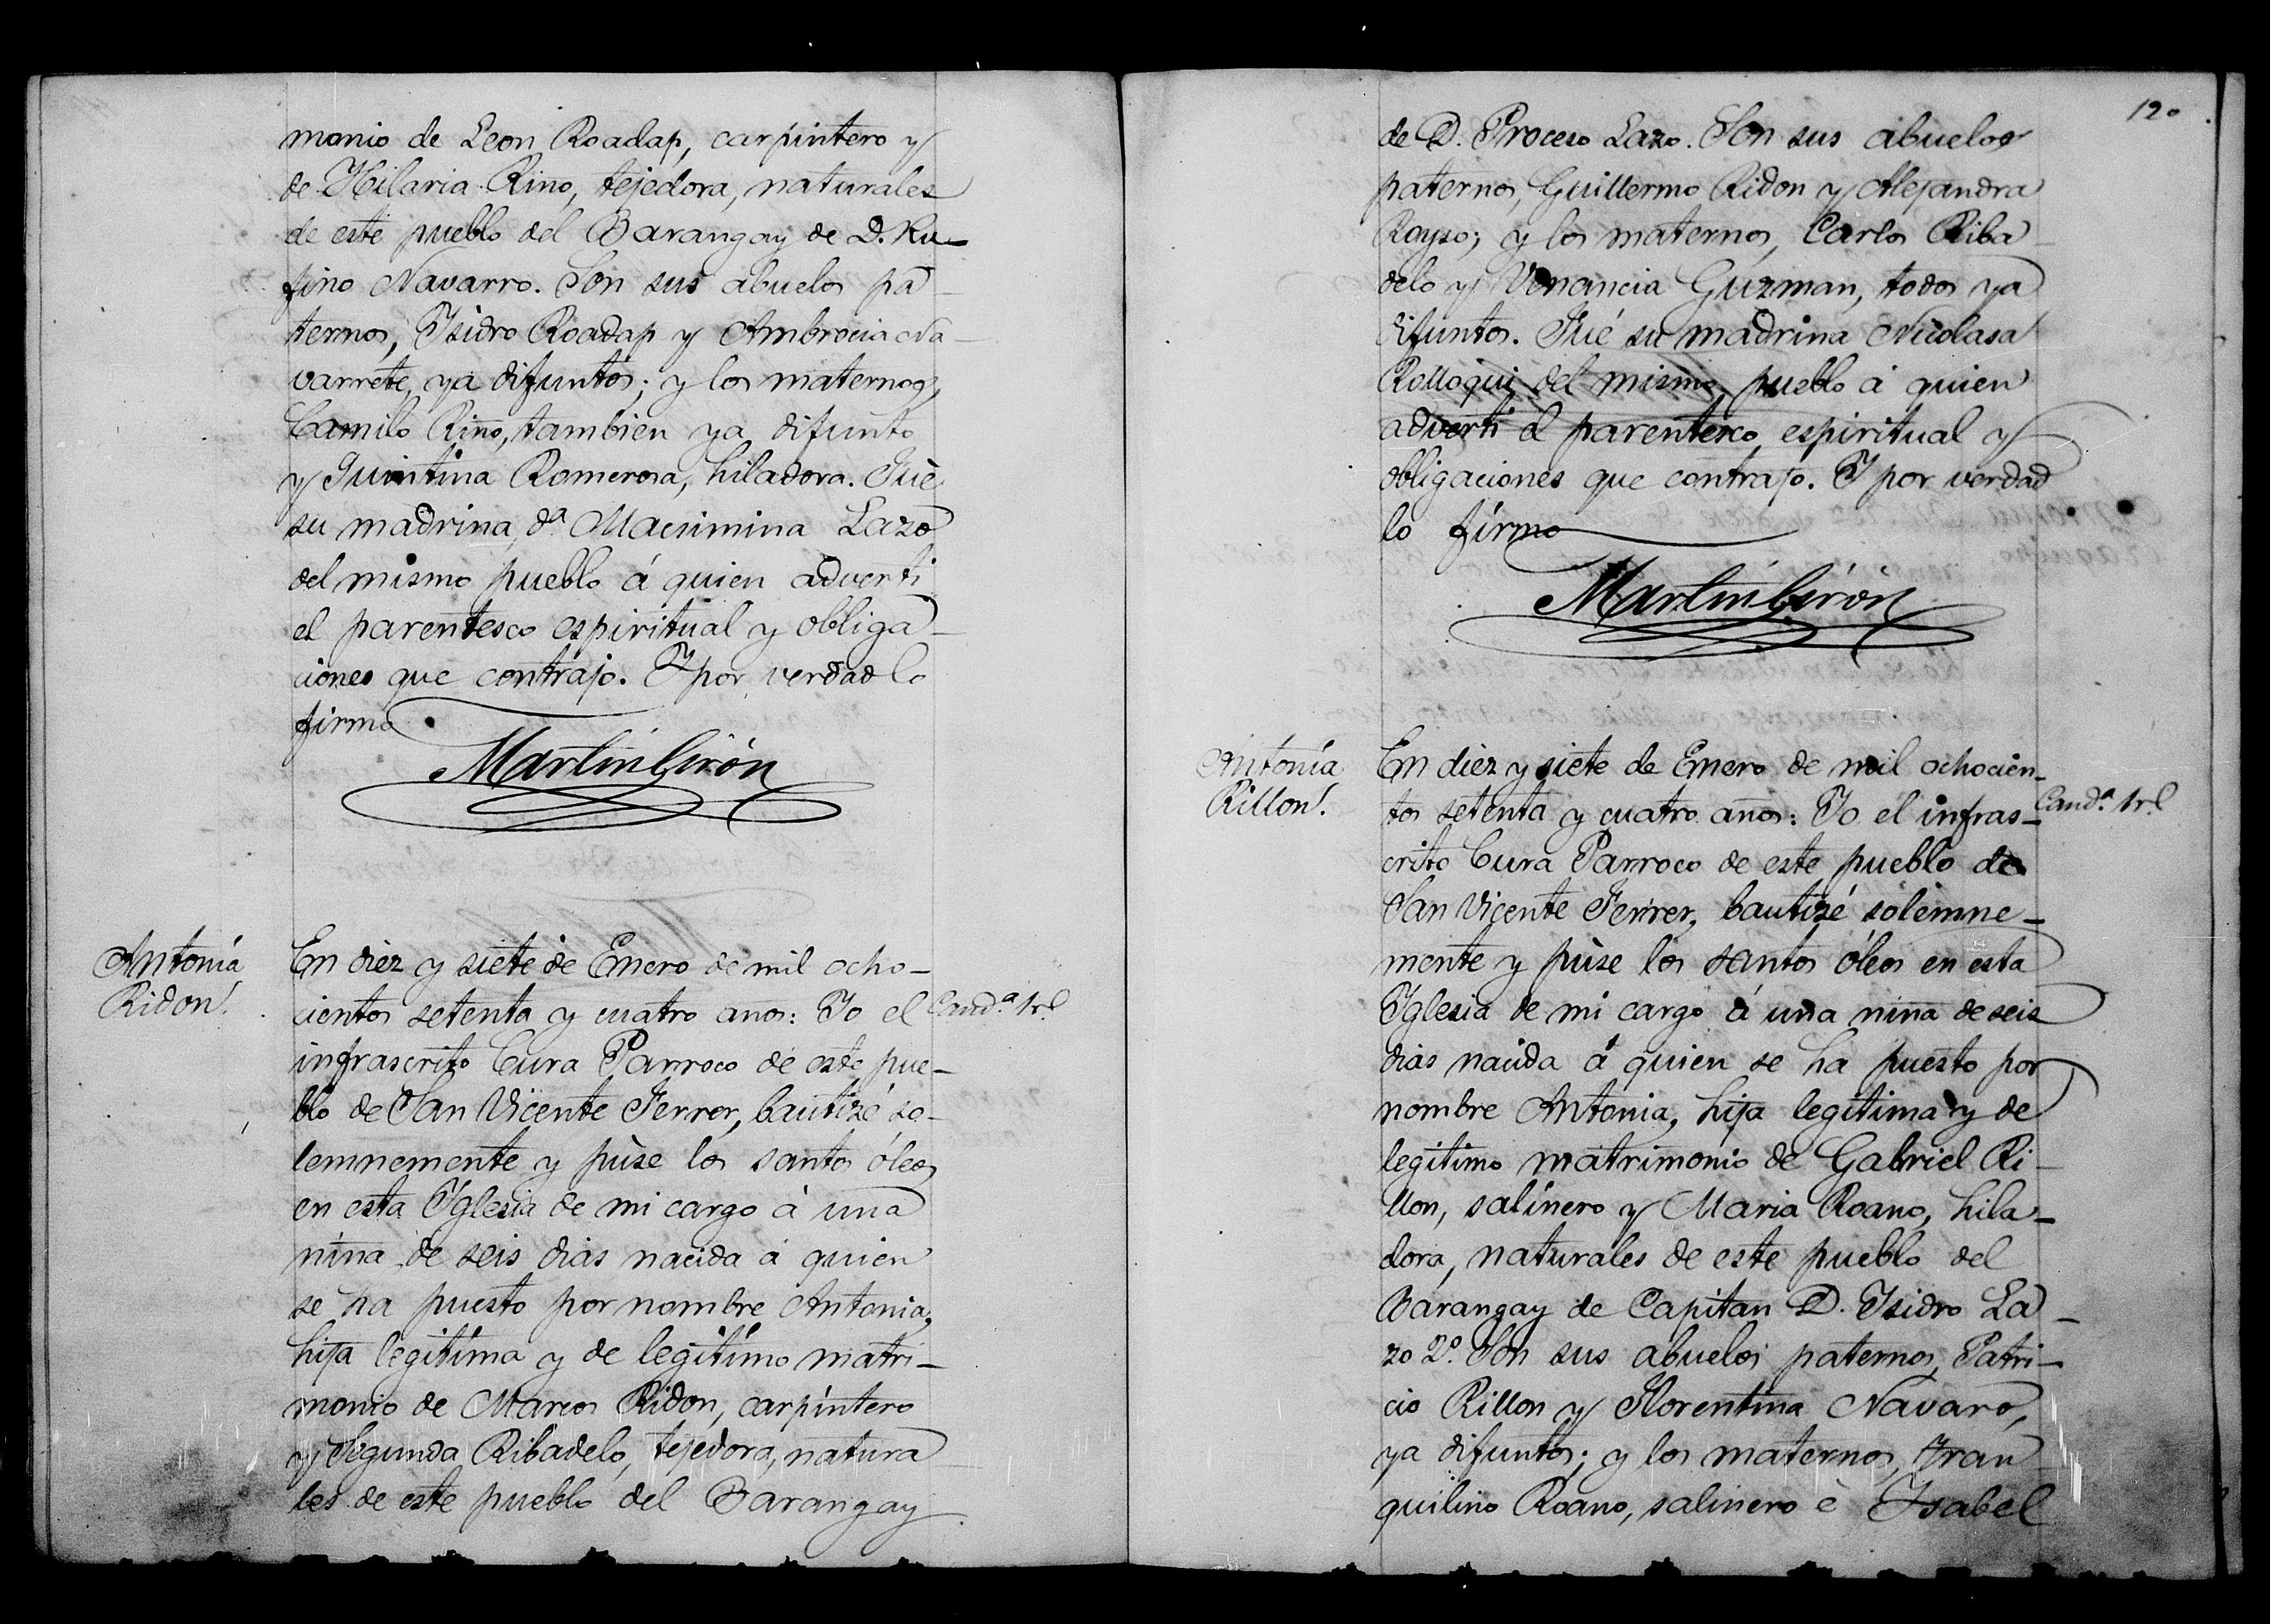 monio de Leon Roadap, carpintero y
de Hilaria Rino, tejedora, naturales
de este pueblo del Barangay de D. Ru-
fino Navarro. Son sus abuelos pa-
ternos, Isidro Roadap y Ambrocia Na-
varrete, ya difuntos; y los maternos,
Camilo Rino, tambien ya difunto
y Quintina Romerosa, hiladora. Fuè
su madrina, dª Macsimina Lazo
del mismo pueblo á quien adverti
el parentesco espiritual y obliga-
ciones que contrajo. Y por verdad lo
firmo
Martin Girón
Antonia
Ridon.
En diez y siete de Enero de mil ocho-
cientos setenta y cuatro anos: Yo el
Candª 1rl
infrascrito Cura Parroco de este pue-
blo de San Vicente Ferrer, bautizé so-
lemnemente y pùse los santos óleos
en esta Yglesia de mi cargo à una
nina de seis dias nacida á quien
se ha puesto por nombre Antonia,
hija legitima y de legitimo matri-
monio de Marcos Ridon, carpintero
y Segunda Ribadelo, tejedora, natura-
les de este pueblo del Barangay
120
de D. Proceso Lazo. Son sus abuelos
paternos, Guillermo Ridon y Alejandra
Rayso; y los maternos, Carlos Riba-
delo y Venancia Guzman, todos ya
difuntos. Fué su madrina Nicolasa
Rolloqui, del mismo pueblo á quien
adverti el parentesco espiritual y
obligaciones que contrajo. Y por verdad
lo firmo
Martin Girón
Antonia
Rillon.
En diez y siete de Enero de mil ochocien-
tos setenta y cuatro anos: Yo el infras-
Candª 1rl
crito Cura Parroco de este pueblo de
San Vicente Ferrer, bautizé solemne-
mente y pùse los santos óleos en esta
Yglesia de mi cargo á una nina de seis
dias nacida á quien se ha puesto por
nombre Antonia, hija legitima y de
legitimo matrimonio de Gabriel Ri-
llon, salinero y Maria Roano, hila-
dora, naturales de este pueblo del
Barangay de Capitan D. Isidro La-
zo 2º. Son sus abuelos paternos, Patri-
cio Rillon y Florentina Navaro,
ya difuntos; y los maternos, Fran-
quilino Roano, salinero è Ysabel